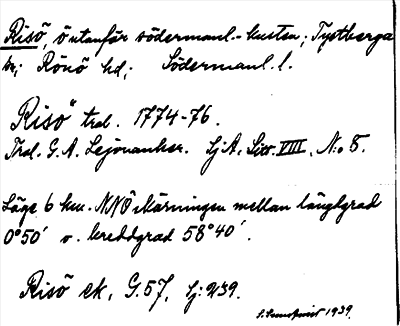 Risö, ö utanför södermanl.-kusten; Tystberga
sn; Rönö hd; Södermanl. l.
"Risö" trol. 1774-76.
Trol. G. A. Lejonanker. Sj.A. Litt. VIII. No 5.
Läge 6 km. NNÖ skärningen mellan längdgrad
0°50' o. breddgrad 58°40'.
Risö ek, G.57, Sj:239.
1939.